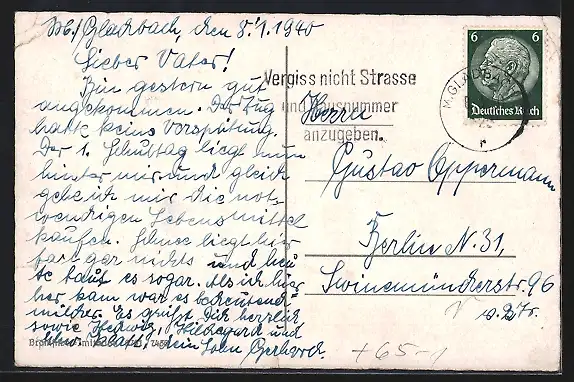 M./Gladbach, den 8.1.1940
Lieber Vater!
Bin gestern gut
angekommen. Der Zug
hatte keine Verspätung.
Der 1. Schultag liegt nun
hinter mir und gleich
gehe ich mir die not-
wendigen Lebensmittel
kaufen. Schnee liegt hier
fast gar nichts und heu-
te taut es sogar. Als ich hier
her kam war es bedeutend
milder. Es grüßt Dich herzlich
sowie Hedwig, Hildegard und
dein Sohn Gerhard.
Vergiss nicht Strasse
und Hausnummer
anzugeben.
M. GLADBACH
r
6 6
Deutsches Reich
Herrn
Gustav Oppermann
Berlin N. 31,
Swinemünderstr. 96
+65-